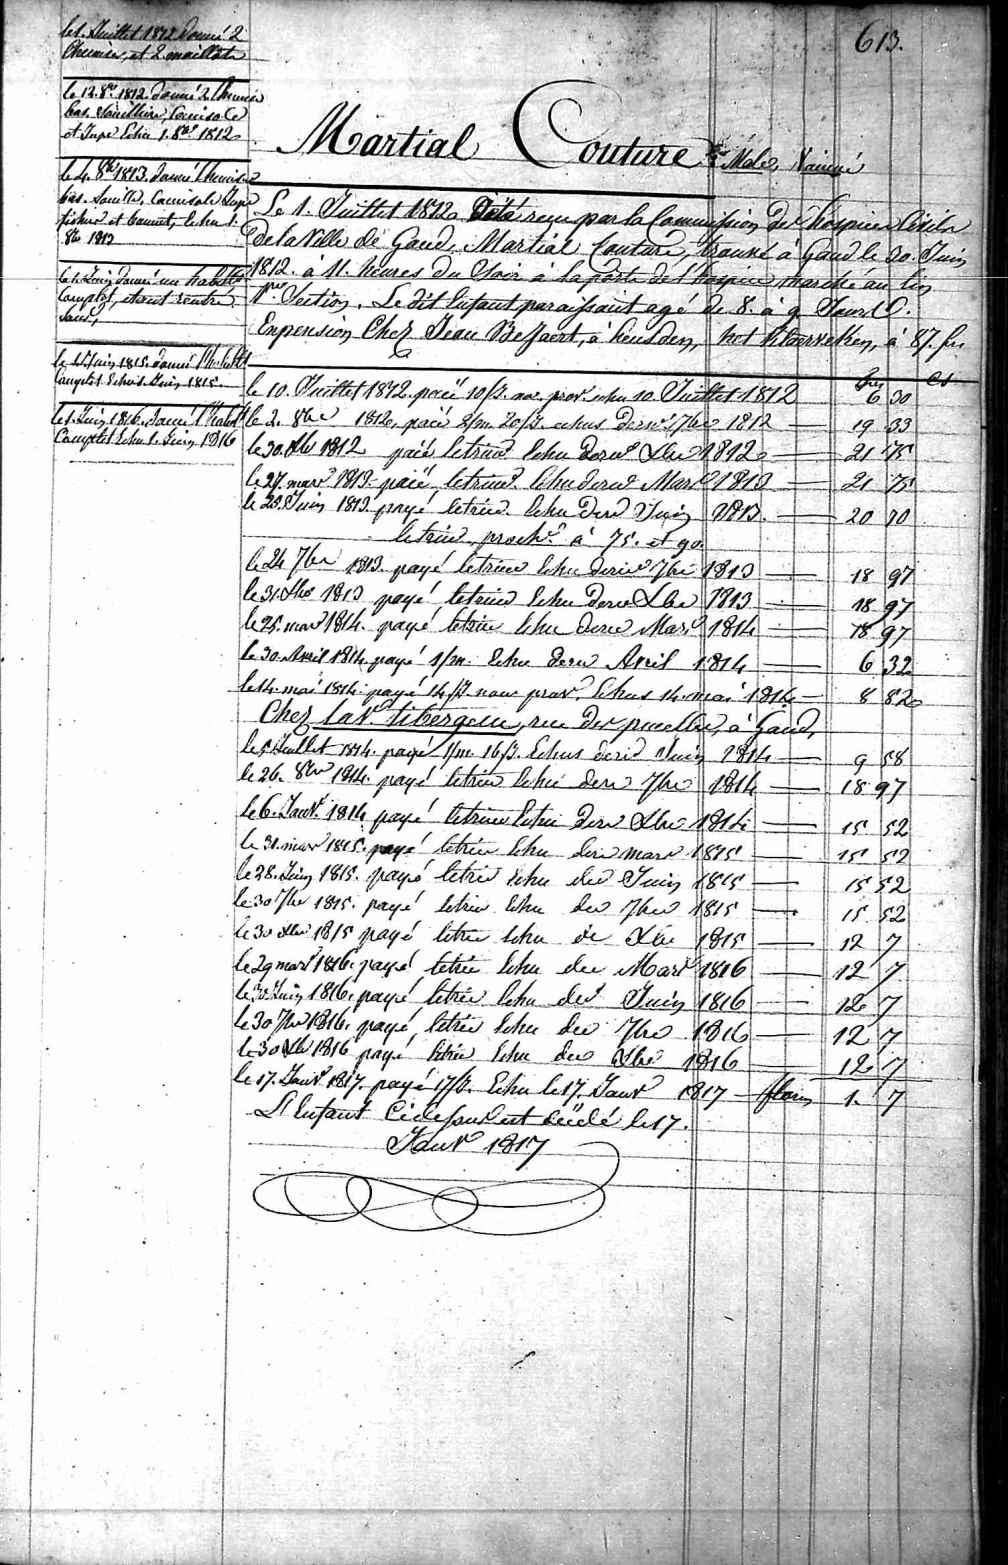 613.
le 1. Juillet 1812 donné 2
Chemises, et 2 maillots
le 12. 8bre 1812. donné 2 Chemises
bas. Camisole
et Jupe Echu 1. 8bre 1812
le 4. 8bre 1813. donné Chemises
bas. Camisole Jupe
fichu et bonnet, Echu 1.
8bre 1813
le 1. Juin donné un habit
Complet,
le Juin 1815. donné l'habitt
Complet Echu 1. Juin 1815.
le 1. Juin 1816. donné l'habitt
Complet Echu 1. Juin 1816
Martial Couture Male, Vaciné
Le 1. Juillet 1812 a été reçu par la Commission des hospices Civils
de la Ville de Gand, Martial Couture, trouvé à Gand le 30. Juin
1812. à 11. heures du Soir à la porte de l'hospice, marché au lin
1re Section. Le dit Enfant paraissant agé de 8. à 9. Jours.
En pension Chez Jean Beffaert, à heusden, à 87. frs
frs cs
le 10. Juillet 1812. paié 10/J. Echu 10. Juillet 1812 — 6 30
le 2. 8bre 1812, paié 2/m. 20/J. echus dern. 7bre 1812 — 19 33
le 30. Xbre 1812 paié le trim. Echu dern. Xbre 1812 — 21 75
le 27. mars 1813. paié, le trim. Echu dern. Mars 1813 — 21 75
le 23. Juin 1813. payé le trim. Echu dern. Juin 1813. — 20 70
le trim. proch. à 75. et 90.
le 24 7bre 1813. payé le trim. Echu dern. 7bre 1813 — 18 97
le 31. Xbre 1813 payé le trim. Echu dern. Xbre 1813 — 18 97
le 25. mars 1814. payé le trim. Echu dern. Mars 1814 — 18 97
le 30. Avril 1814 payé 1/m. Echu dern. Avril 1814 — 6 32
le 14. mai 1814. payé 14/J. Echus 14. mai 1814 — 8 82
Chez la Ve. libergem, rue des pucelles, à Gand,
le 5 Juillet 1814. payé 1/m 16/J. Echus dern. Juin 1814 — 9 58
le 26. 8bre 1814. payé le trim. Echu dern. 7bre 1814 — 18 97
le 6. Janv. 1814 payé le trim. Echu dern. Xbre 1814 — 15 52
le 31. mars 1815. payé le trim. Echu dern. mars 1815 — 15 52
le 28. Juin 1815. payé le trim. Echu der Juin 1815 — 15 52
le 30 7bre 1815. payé le trim. Echu der 7bre 1815 — 15 52
le 30 Xbre 1815 payé le trim. Echu de Xbre 1815 — 12 7
le 29 mars 1816. payé le trim. Echu der Mars 1816 — 12 7
le 30. Juin 1816. payé le trim. Echu der Juin 1816 — 12 7
le 30 7bre 1816. payé le trim. Echu der 7bre 1816 — 12 7
le 30 Xbre 1816 payé le trim. Echu der Xbre 1816 — 12 7
le 17. Janv. 1817. payé 17/J. Echu le 17. Janv. 1817 — florins 1. 7
L'Enfant Cidessus est décédé le 17.
Janv. 1817